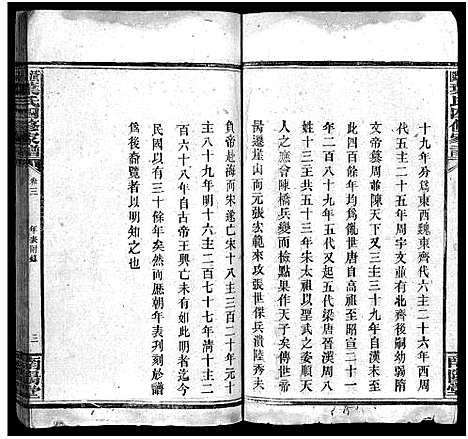 十九年分爲東西魏東齊代六主二十六年西周
代五主二十五年周宇文並有北齊後嗣幼弱隋
文帝簒周並陳天下又歴三主三十九年自漢末至
四百餘年均爲亂世唐自高祖至
年二百八十九年五代又起五代梁唐晉漢周八
姓十三主共五十三年宋太祖以聖武之姿順天
人之應會陳橋兵變而檢點果作天子矣傳世帝
昺遷崖山而元張宏範來攻張世傑兵潰陸秀夫
負帝赴海而宋遂亡宋十八主三百二十年元十
主八十九年明十六主二百七十七年清十主二
百六十八年自古帝王興亡未有如此明者迄今
民國以有三十餘年矣然而歴朝年表列刻於譜
爲後裔覽者以明知之也
葉氏四修家譜
卷三
年表附錄
三
南陽堂
葉氏四修家譜
南陽堂